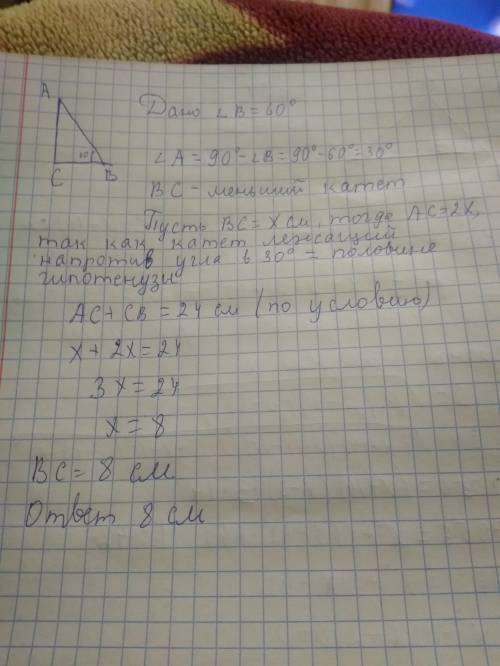 A
Дано ∠B = 60°
60°
C
B
∠A = 90° - ∠B = 90° - 60° = 30°
BC - меньший катет
Пусть BC = X см, тогда AC = 2X,
так как катет лежащий
напротив угла в 30° = половине
гипотенузы
AC + CB = 24 см (по условию)
X + 2X = 24
3X = 24
X = 8
BC = 8 см
Ответ 8 см